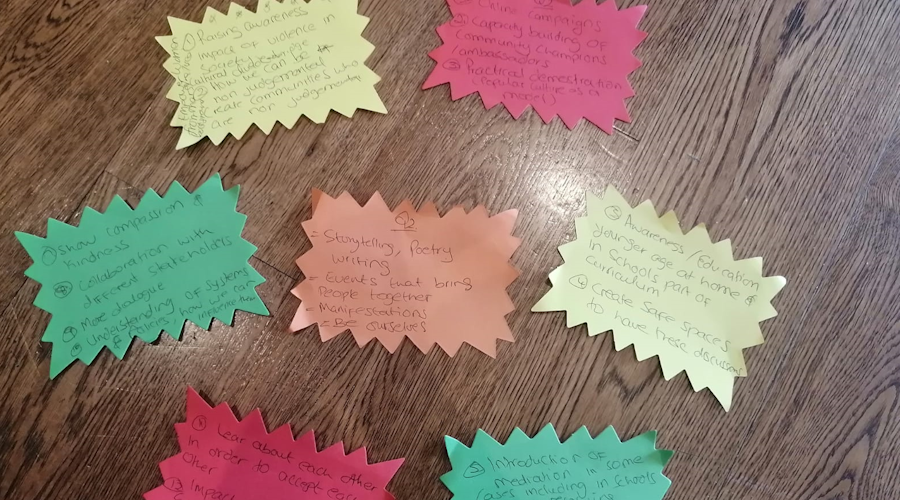 ① Raising awareness
impact of violence in
society
How we can be
non judgemental
communities who
are non judgemental
Online campaigns
② Capacity building of
Community Champions
/ambassadors
③ Practical demostration
(Popular culture as a
① Show compassion &
kindness
Collaboration with
different stakeholders
More dialogue
Understanding of systems
& policies how we can
Q2
= Storytelling, Poetry
writing
= Events that bring
People together
= Manifestations
= Be ourselves
③ Awareness /Education
younger age at home &
in schools part of
curriculum
④ Create Safe spaces
to have these discussions
Lear about each other
in order to accept each
Other
Impact
Introduction of
mediation in some
cases including in schools